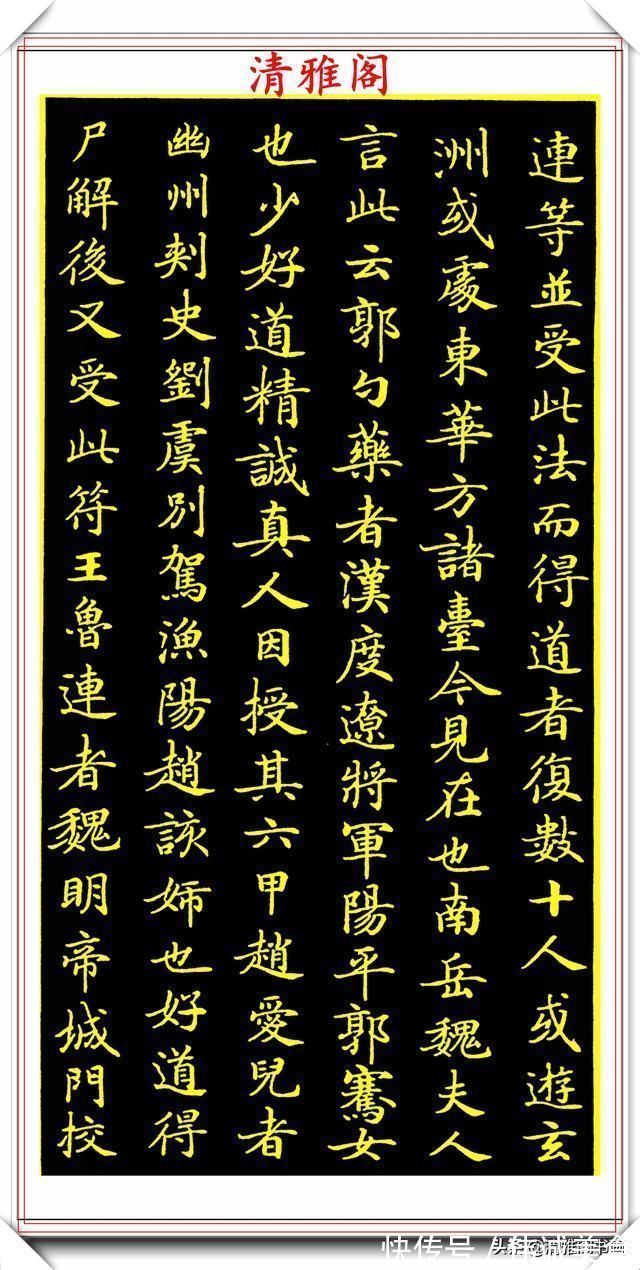 清雅阁
連等並受此法而得道者復數十人或遊玄
洲或處東華方諸臺今見在也南岳魏夫人
言此云郭勺藥者漢度遼將軍陽平郭騫女
也少好道精誠真人因授其六甲趙愛兒者
幽州刾史劉虞別駕漁陽趙該姉也好道得
尸解後又受此符王魯連者魏明帝城門校
快传号